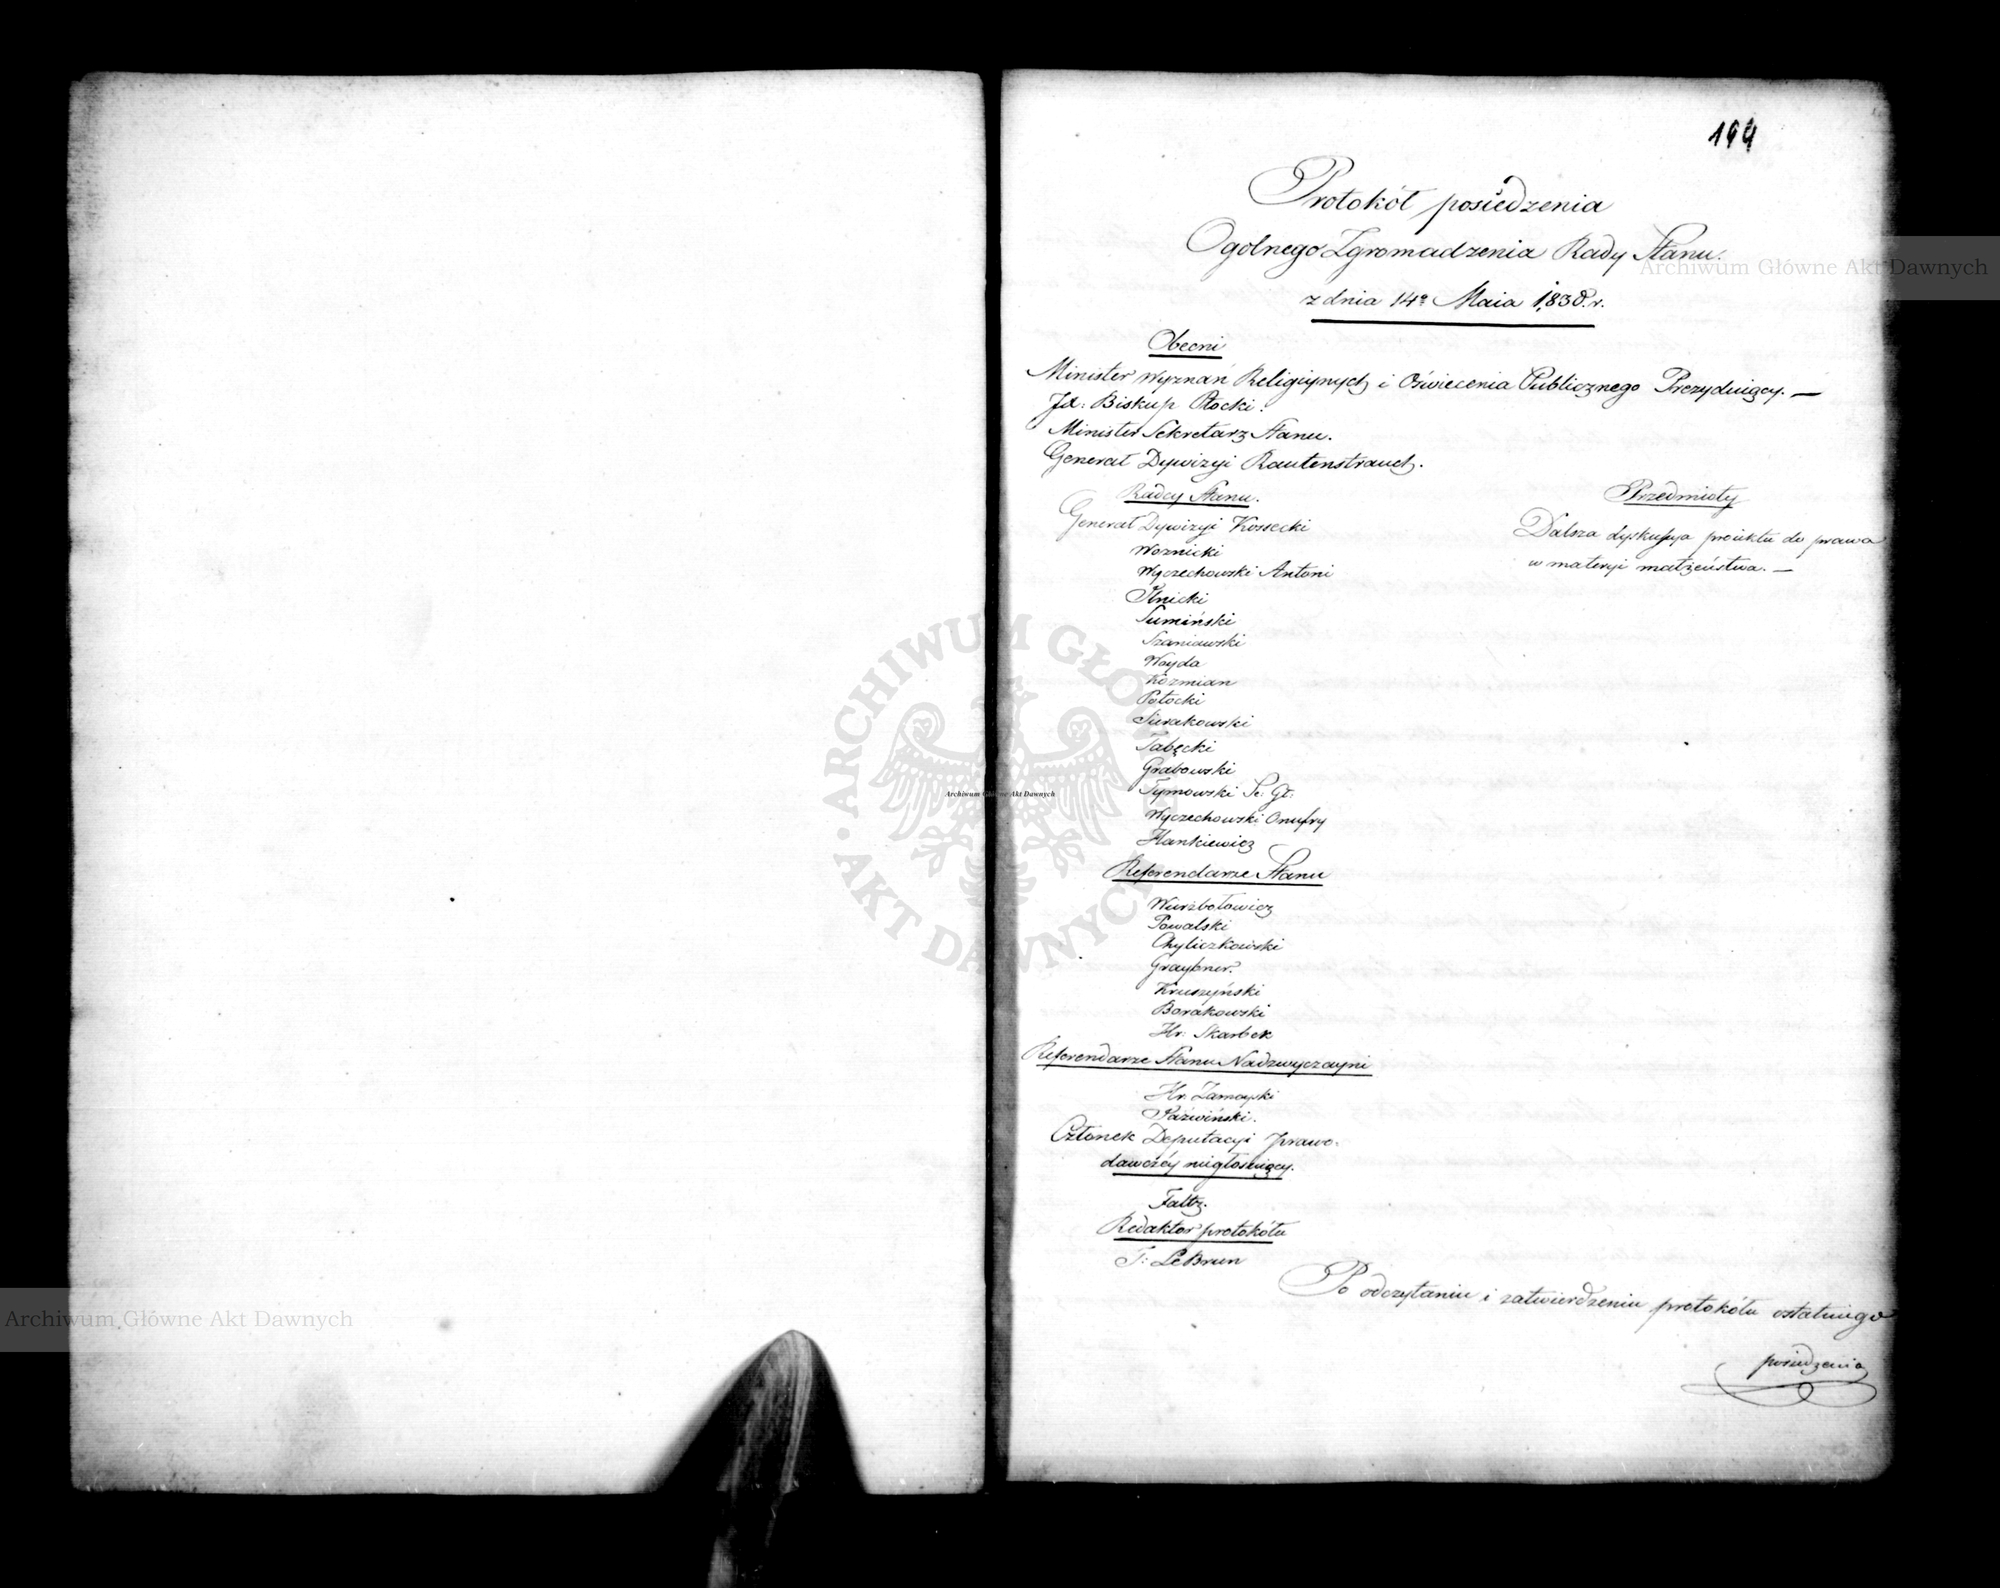 194
Protokół posiedzenia
Ogolnego Zgromadzenia Rady Stanu.
z dnia 14º Maia 1830. r.
Obecni
Minister Wyznań Religiynych i Oświecenia Publicznego Prezyduiący. —
Jx: Biskup Płocki.
Minister Sekretarz Stanu.
Generał Dywizyi Rautenstrauch.
Radcy Stanu.
Przedmioty
Generał Dywizyi Kossecki
Dalsza dyskussya proiektu do prawa
w materyi małżeństwa. —
Woznicki
Wyczechowski Antoni
Plnicki
Sumiński
Szaniawski
Woyda
Kozmian
Potocki
Sierakowski
Tabęcki
Grabowski
Tymowski Se: Gł:
Wyczechowski Onufry
Hankiewicz
Referendarze Stanu
Wierzbołowicz
Powalski
Chyliczkowski
Graybner.
Kruszyński
Borakowski
Hr: Skarbek
Referendarze Stanu Nadzwyczayni
Hr. Zamoyski
Paźwiński.
Członek Deputacyi Prawo-
dawczéy niegłosuiący.
Faltz.
Redaktor protokółu
T: LeBrun
Po odczytaniu i zatwierdzeniu protokółu ostatniego
posiedzenia
Archiwum Główne Akt Dawnych
ARCHIWUM GŁÓWNE AKT DAWNYCH
Archiwum Główne Akt Dawnych
Archiwum Główne Akt Dawnych